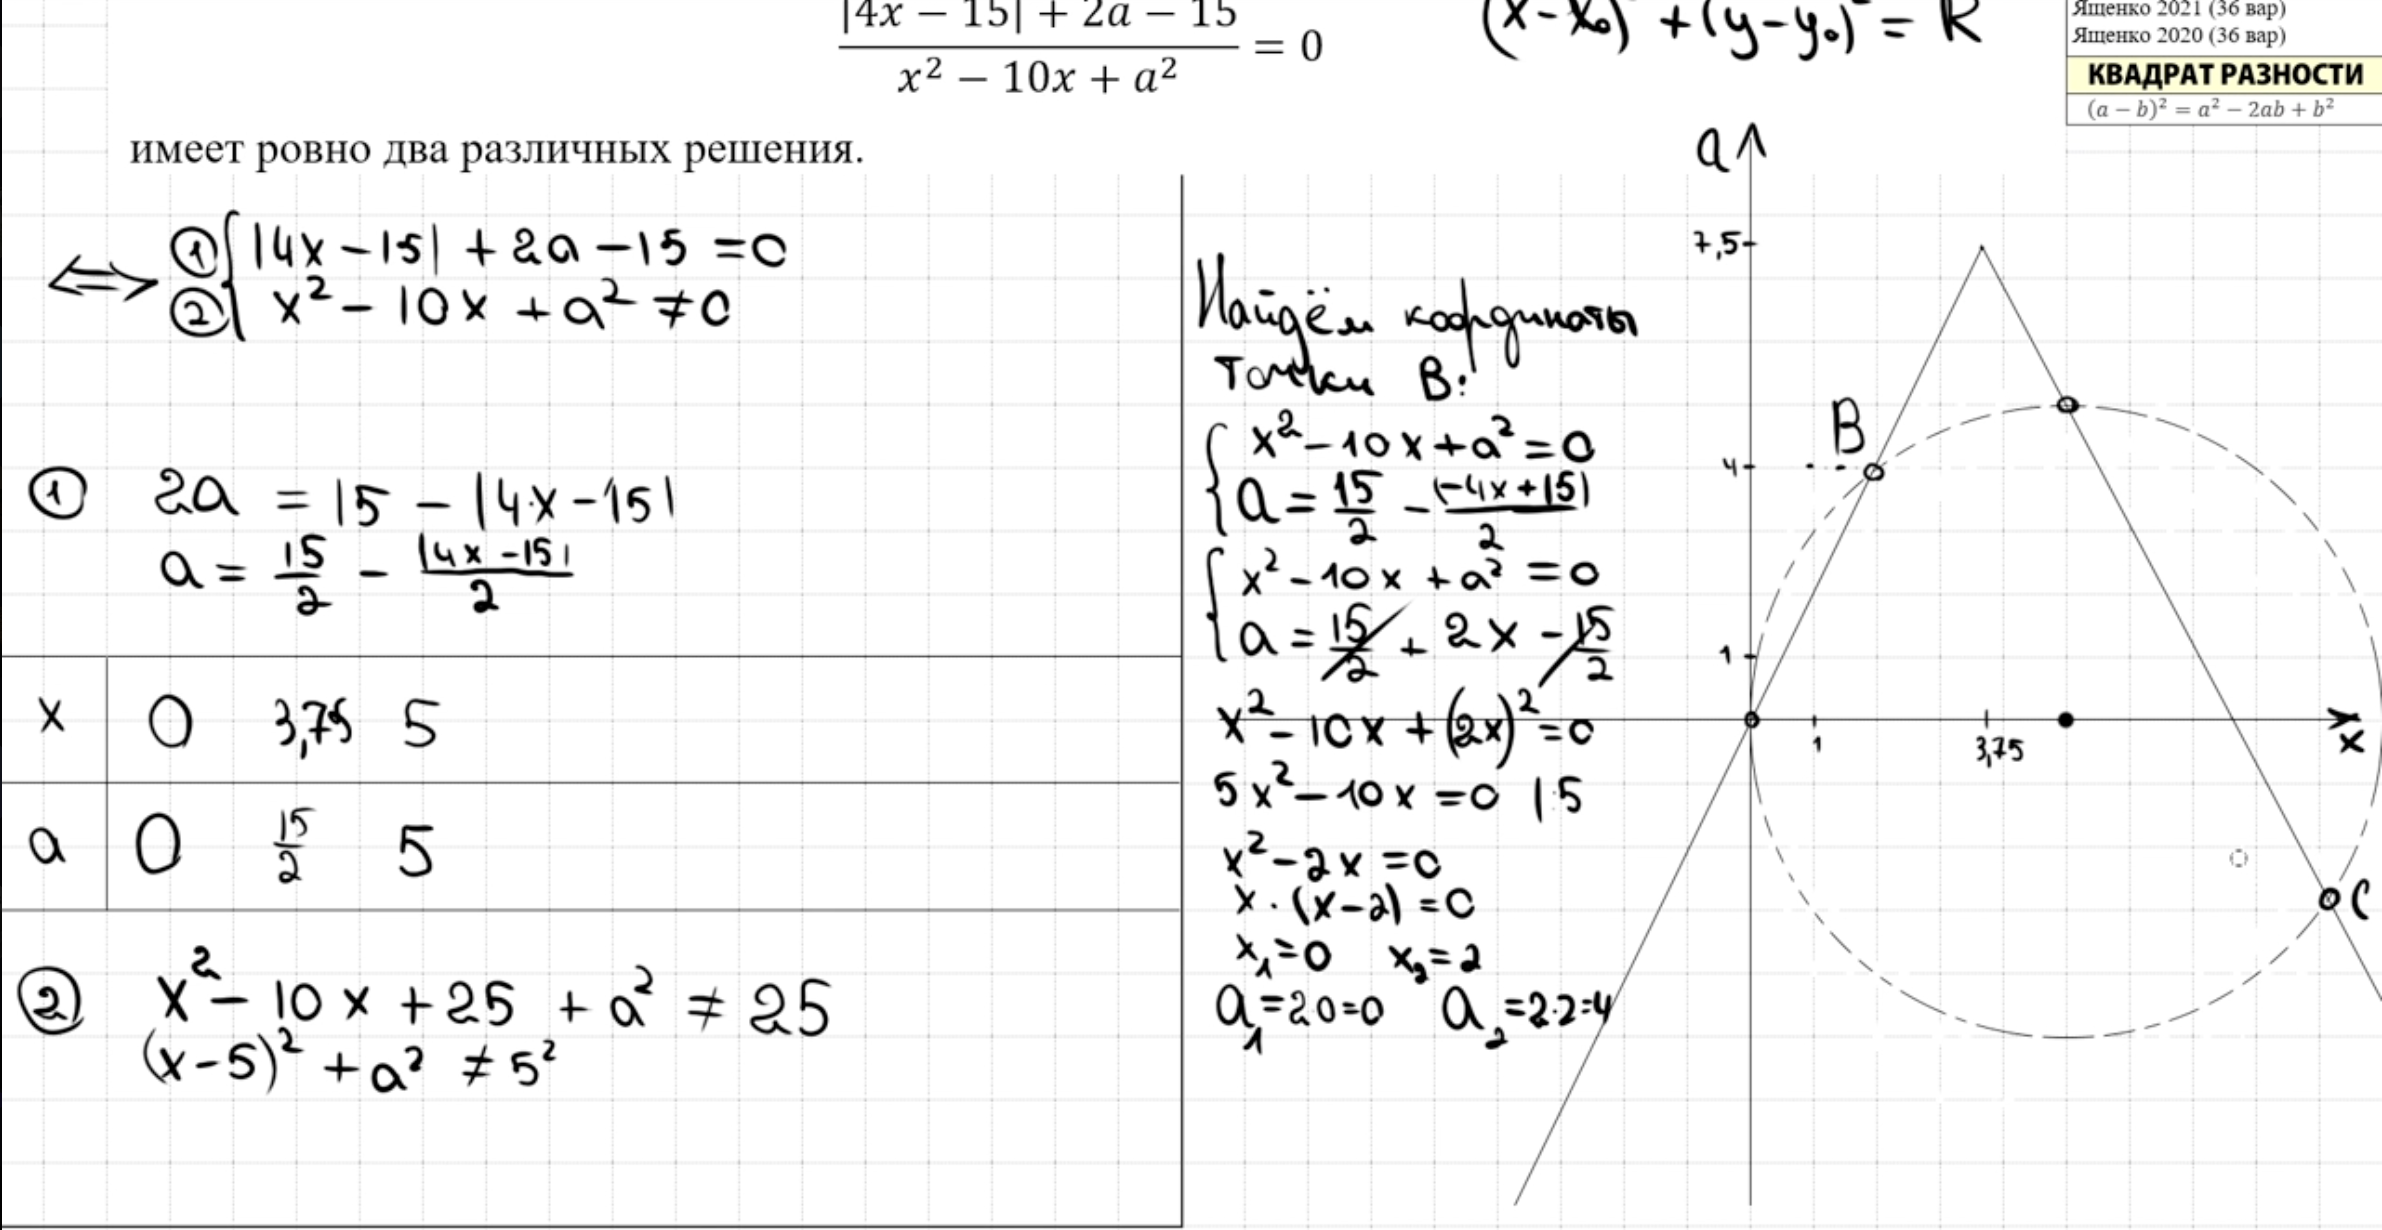 |4x − 15| + 2a − 15
x² − 10x + a²
= 0
(x-x₀)² + (y-y₀)² = R
Ященко 2021 (36 вар)
Ященко 2020 (36 вар)
КВАДРАТ РАЗНОСТИ
(a − b)² = a² − 2ab + b²
имеет ровно два различных решения.
⟺ ① { |4x − 15| + 2a − 15 = 0
② { x² − 10x + a² ≠ 0
① 2a = 15 − |4x − 15|
a = 15/2 − |4x − 15|/2
x 0 3,75 5
a 0 15/2 5
② x² − 10x + 25 + a² ≠ 25
(x − 5)² + a² ≠ 5²
Найдём координаты
точки B:
{ x² − 10x + a² = 0
{ a = 15/2 − (−4x + 15)/2
{ x² − 10x + a² = 0
{ a = 15/2 + 2x − 15/2
x² − 10x + (2x)² = 0
5x² − 10x = 0 |:5
x² − 2x = 0
x · (x − 2) = 0
x₁ = 0 x₂ = 2
a₁ = 2·0 = 0 a₂ = 2·2 = 4
a
7,5
B
4
1
1
3,75
x
C